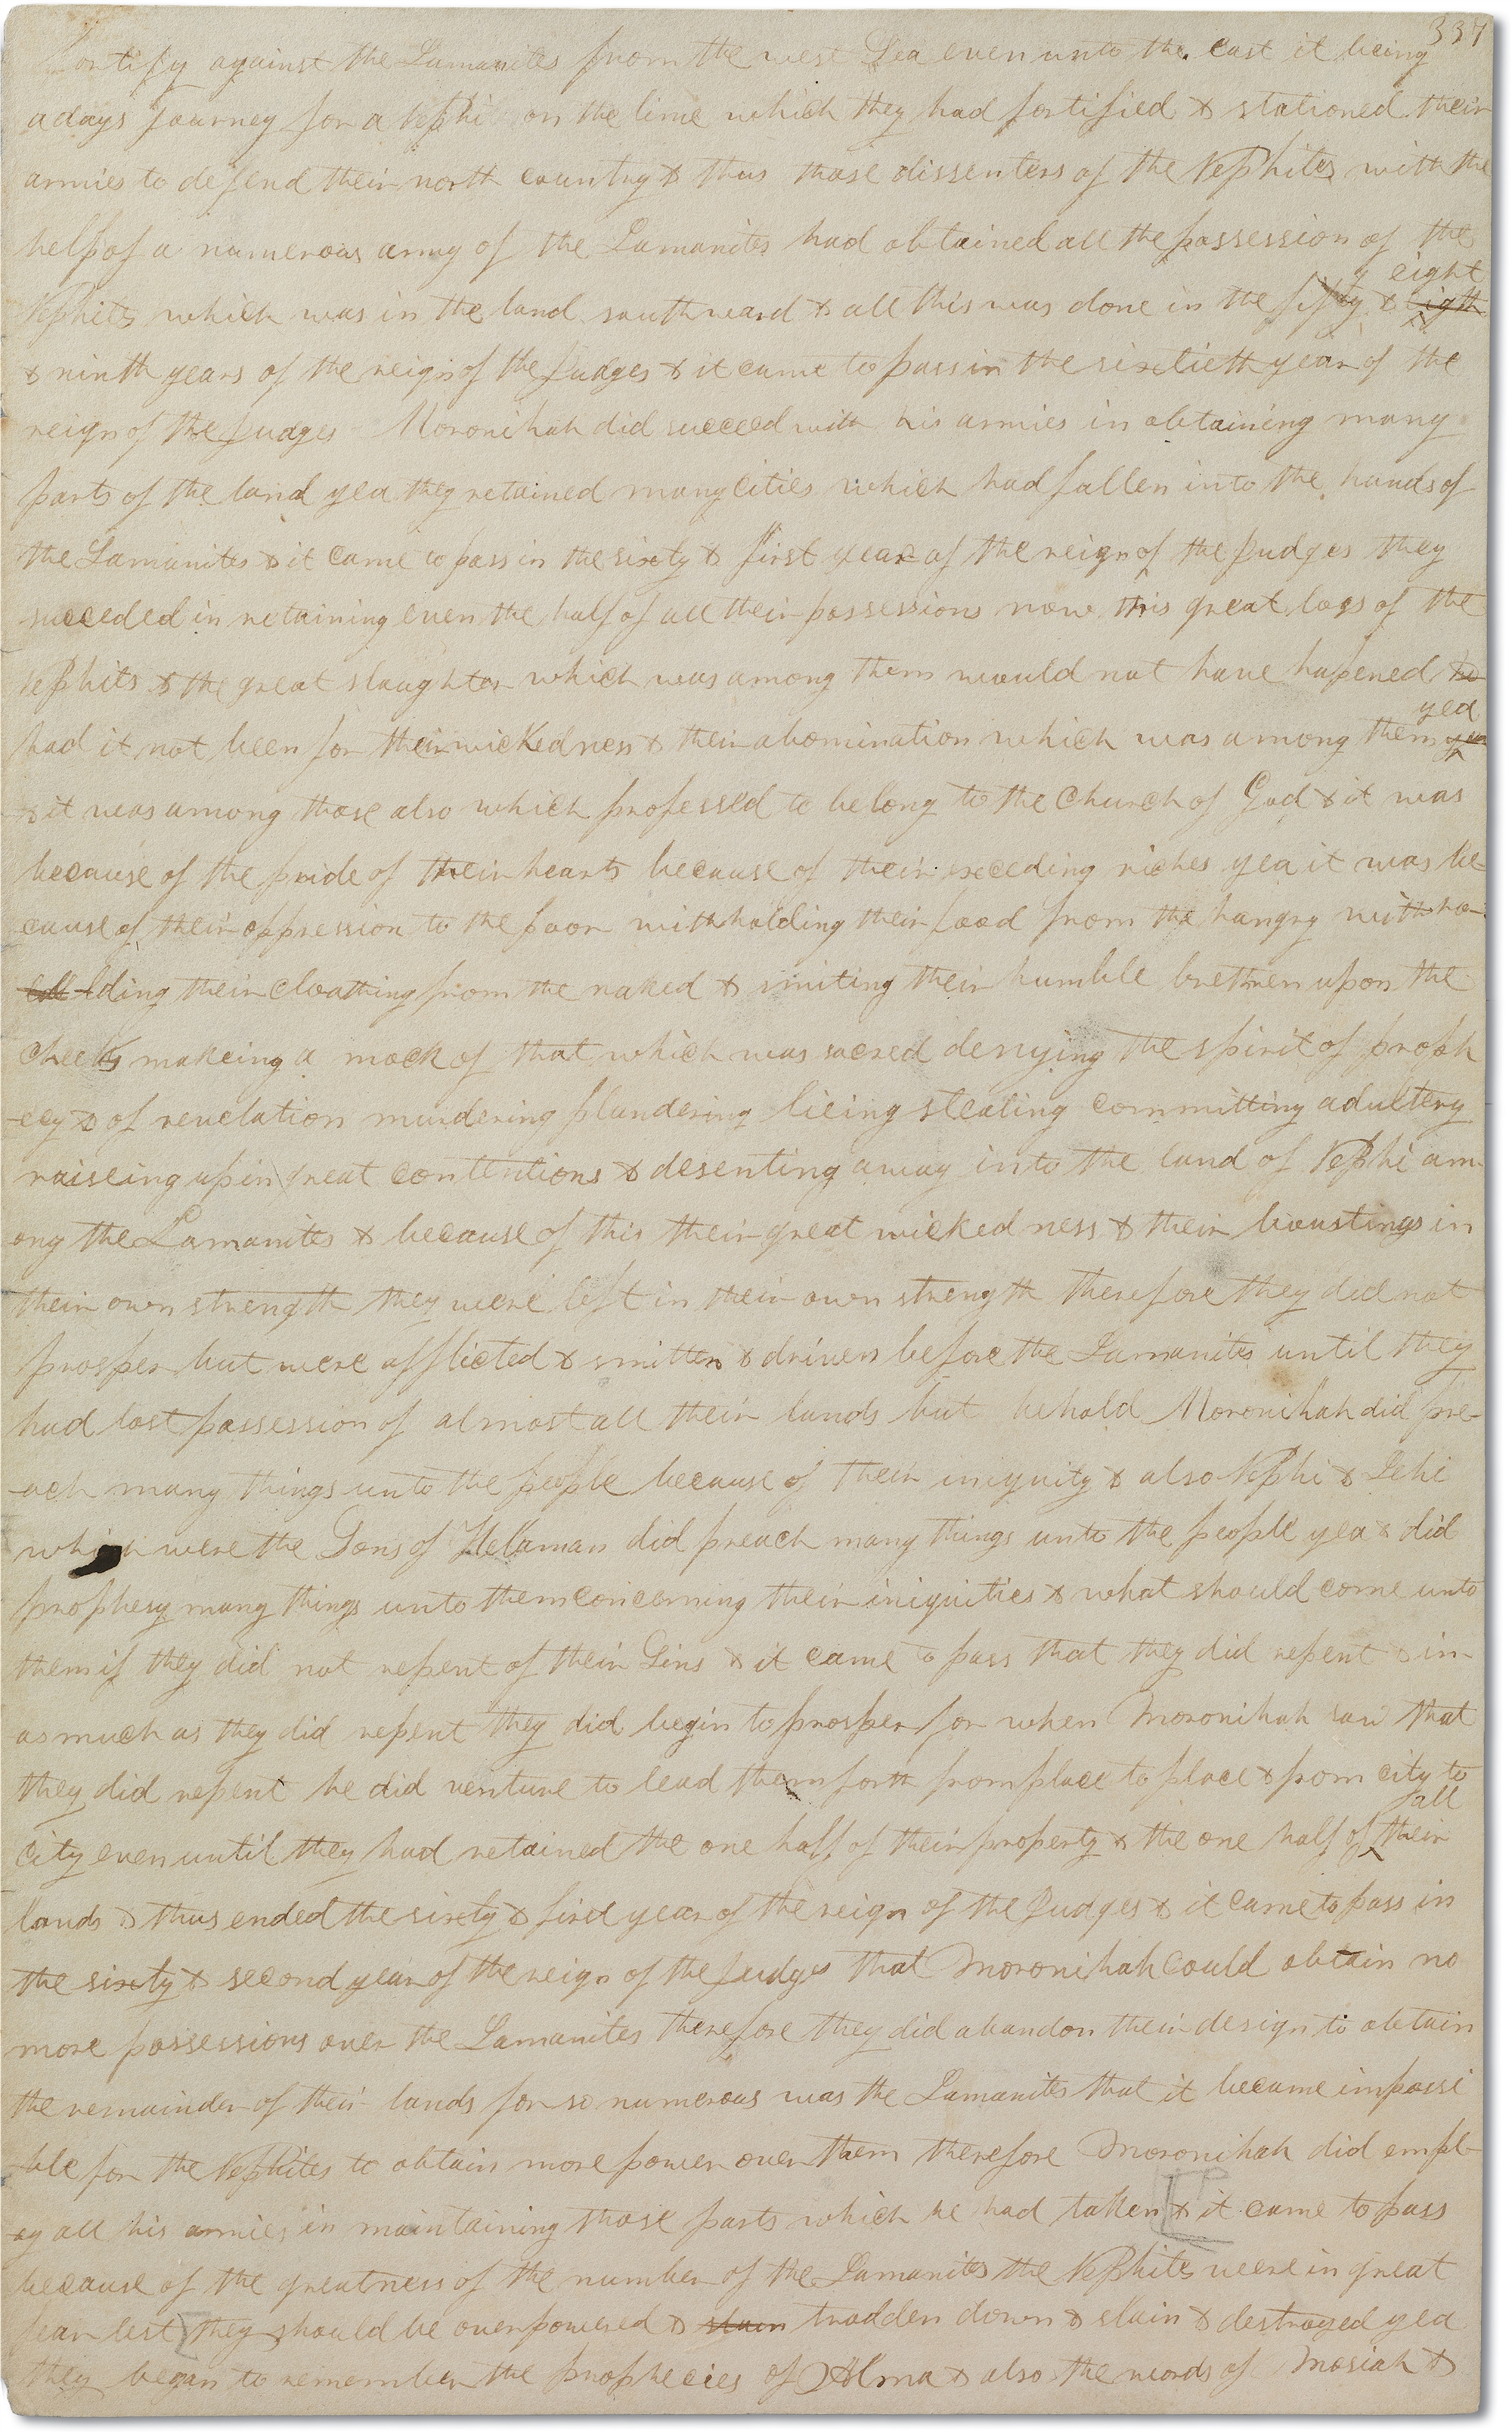 337
Fortify against the Lamanites from the west Sea even unto the east it being
a days journey for a Nephi on the line which they had fortified & stationed their
armies to defend their north country & thus those dissenters of the Nephites with the
help of a numerous army of the Lamanites had obtained all the possession of the
y eight
Nephits which was in the land southward & all this was done in the fifty & eigth
& ninth years of the reign of the Judges & it came to pass in the sixtieth year of the
reign of the Judges Moronihah did succeed with his armies in obtaining many
parts of the land yea they retained many cities which had fallen into the hands of
the Lamanites & it came to pass in the sixty & first year of the reign of the Judges they
succeded in retaining even the half of all their possessions now this great loss of the
Nephits & the great slaughter which was among them would not have hapened
yea
had it not been for their wickedness & their abomination which was among them yea
& it was among those also which professed to belong to the Church of God & it was
because of the pride of their hearts because of their exceding riches yea it was be
cause of their oppression to the poor withholding their food from the hungry withho-
lding their cloathing from the naked & smiting their humble brethren upon the
cheeks makeing a mock of that which was sacred denying the spirit of proph
-ecy & of revelation murdering plundering lieing stealing committing adultery
raiseing up in great contentions & desenting away into the land of Nephi am-
ong the Lamanites & because of this their great wickedness & their boustings in
their own strength they were left in their own strength therefore they did not
prosper but were afflicted & smitten & driven before the Lamanites until they
had lost possession of almost all their lands but behold Moronihah did pre-
-ach many things unto the people because of their iniquity & also Nephi & Lehi
which were the Sons of Helaman did preach many things unto the people yea & did
prophesy many things unto them concerning their iniquities & what should come unto
them if they did not repent of their Sins & it came to pass that they did repent & in-
asmuch as they did repent they did begin to prosper for when Moronihah saw that
they did repent he did venture to lead them forth from place to place & from city to
all
city even until they had retained the one half of their property & the one half of their
lands & thus ended the sixty & first year of the reign of the Judges & it came to pass in
the sixty & second year of the reign of the Judges that Moronihah could obtain no
more possessions over the Lamanites therefore they did abandon their design to obtain
the remainder of their lands for so numerous was the Lamanites that it became impossi
-ble for the Nephites to obtain more power over them therefore Moronihah did empl-
oy all his armies in maintaining those parts which he had taken & it came to pass
because of the greatness of the number of the Lamanites the Nephites were in great
fear lest they should be overpowered & slain trodden down & slain & destroyed yea
they began to remember the prophecies of Alma & also the words of Mosiah &